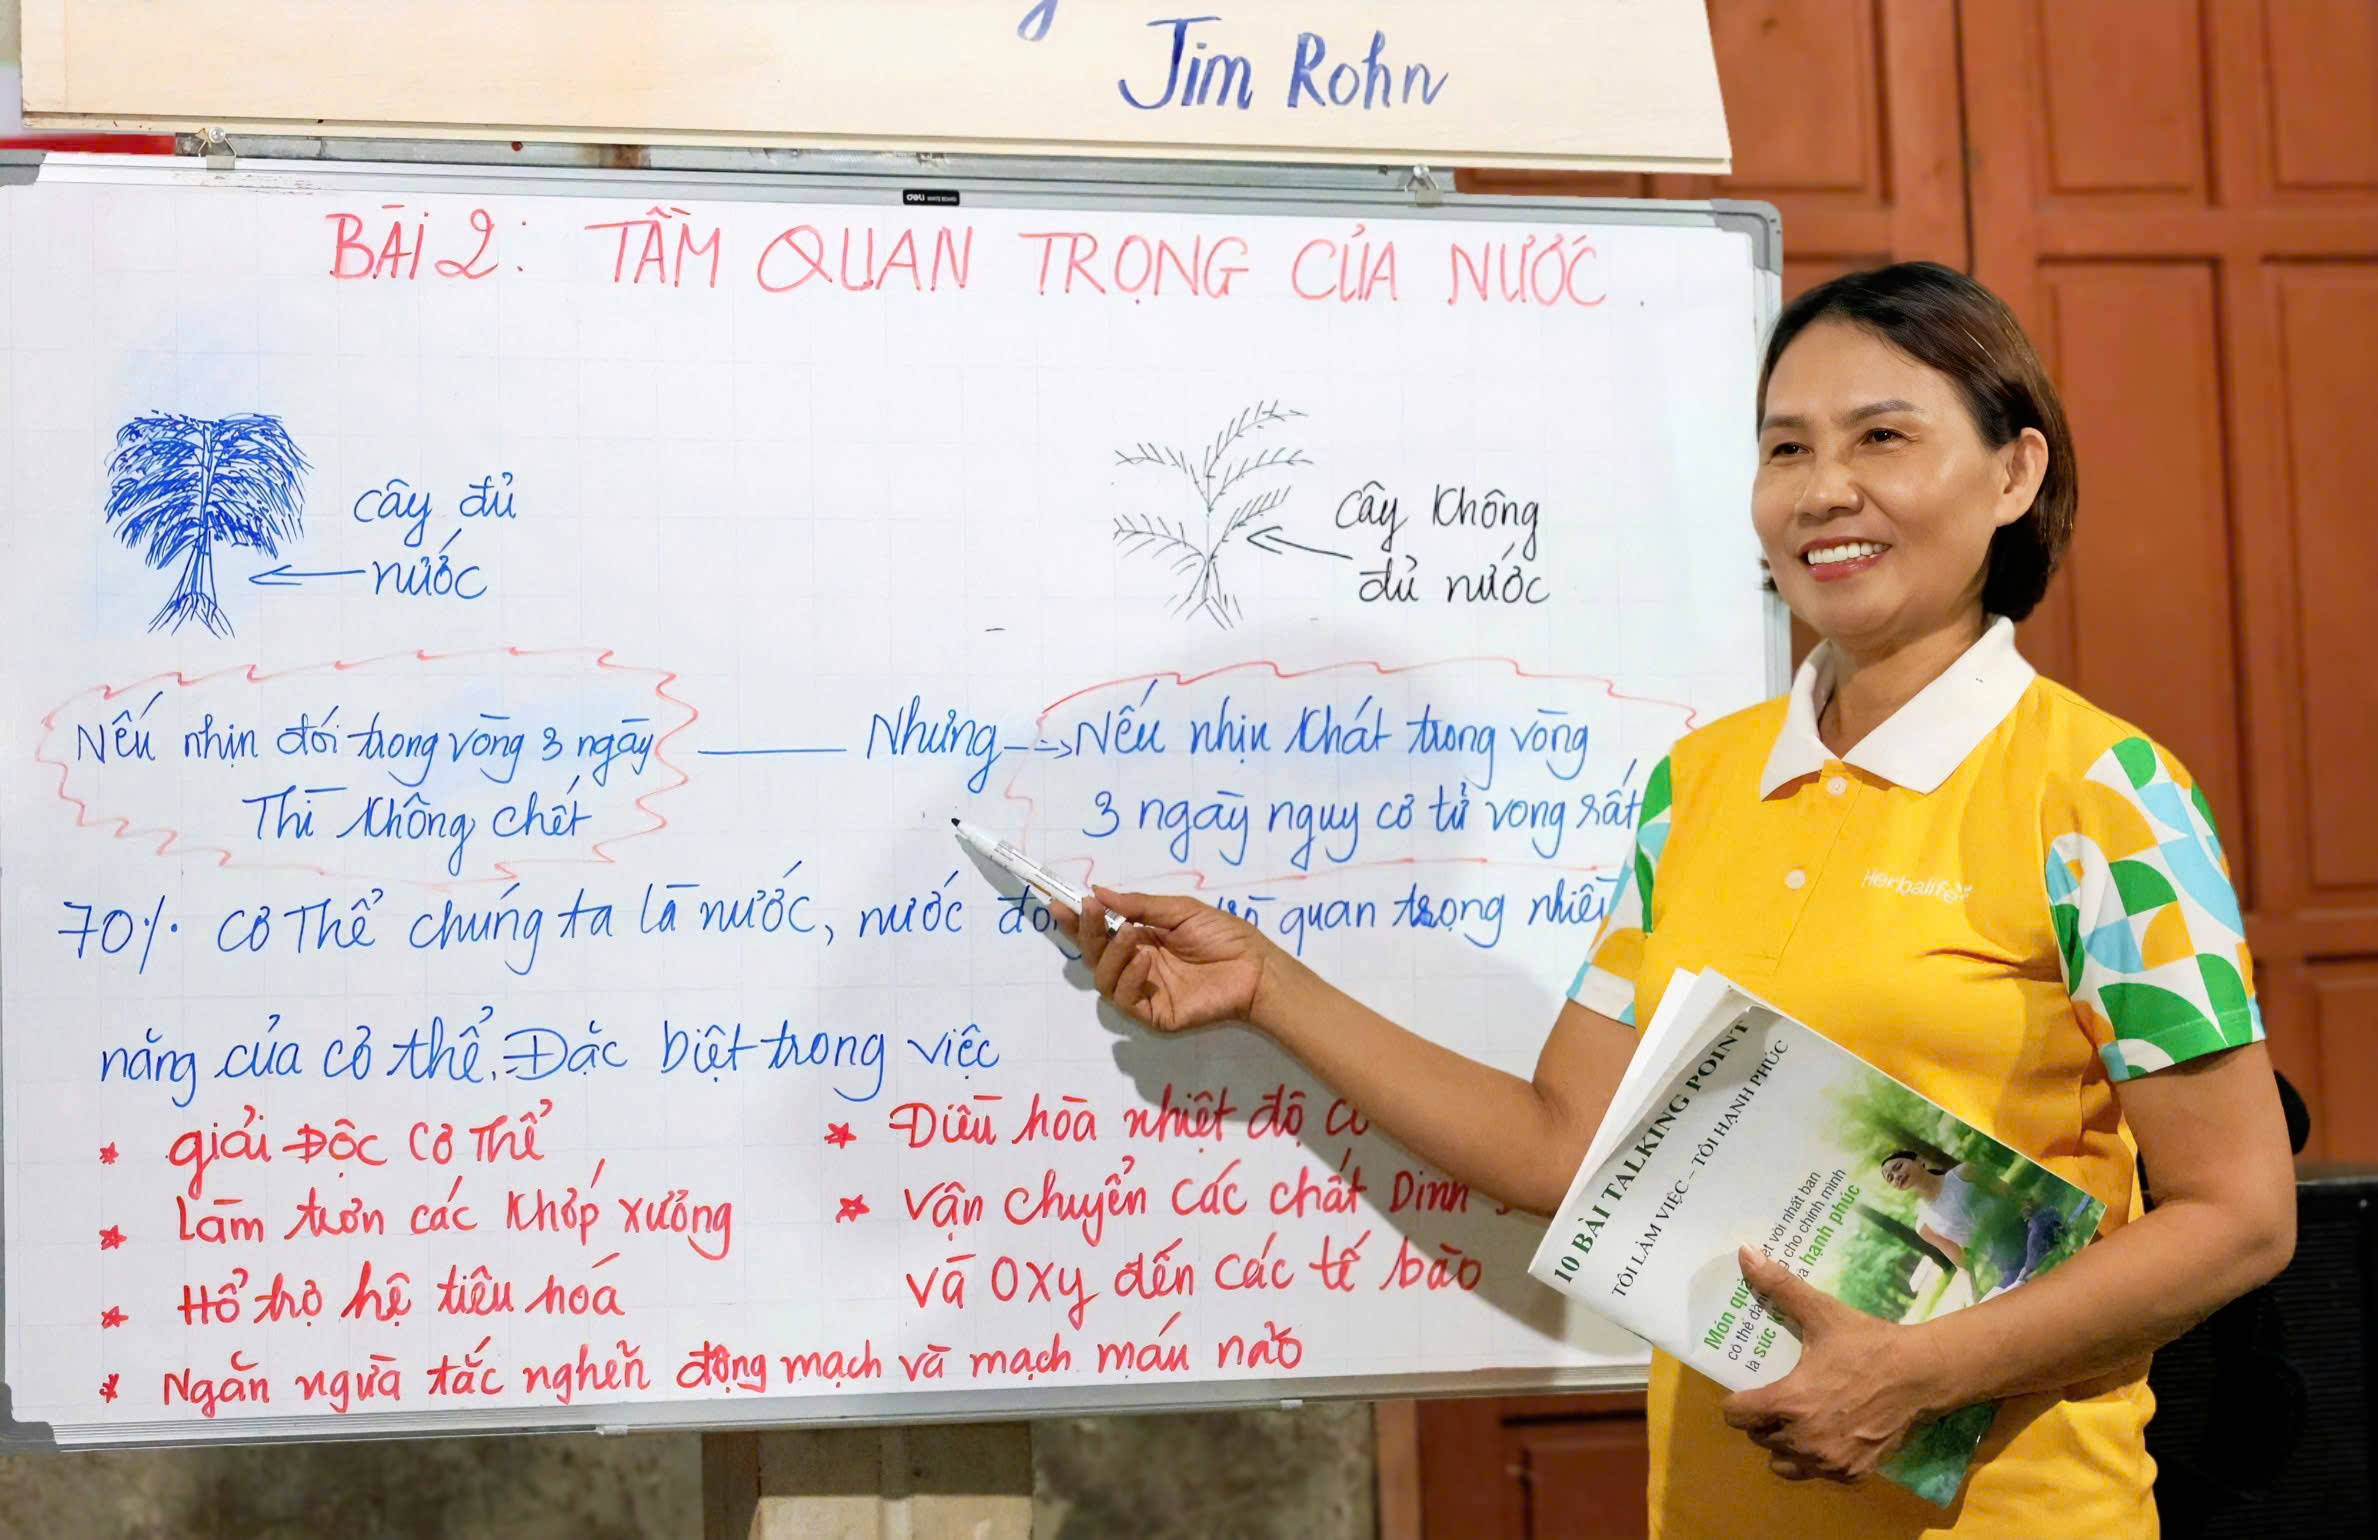 Jim Rohn
deli WHITE BOARD
BÀI 2: TẦM QUAN TRỌNG CỦA NƯỚC.
Cây đủ
nước
Cây không
đủ nước
Nếu nhịn đói trong vòng 3 ngày
Thì không chết
Nhưng
Nếu nhịn khát trong vòng
3 ngày nguy cơ tử vong rất
70% cơ thể chúng ta là nước, nước quan trọng nhiều
năng của cơ thể. Đặc biệt trong việc
* giải Độc cơ Thể
* Làm trơn các khớp xương
* Hổ trợ hệ tiêu hoá
* Ngăn ngừa tắc nghẽn động mạch và mạch máu não
* Điều hòa nhiệt độ
* vận chuyển các chất Dinh
và Oxy đến các tế bào
Herbalife
10 BÀI TALKING POINT
TÔI LÀM VIỆC – TÔI HẠNH PHÚC
Món quà với nhất bạn
có thể cho chính mình
là sức hạnh phúc